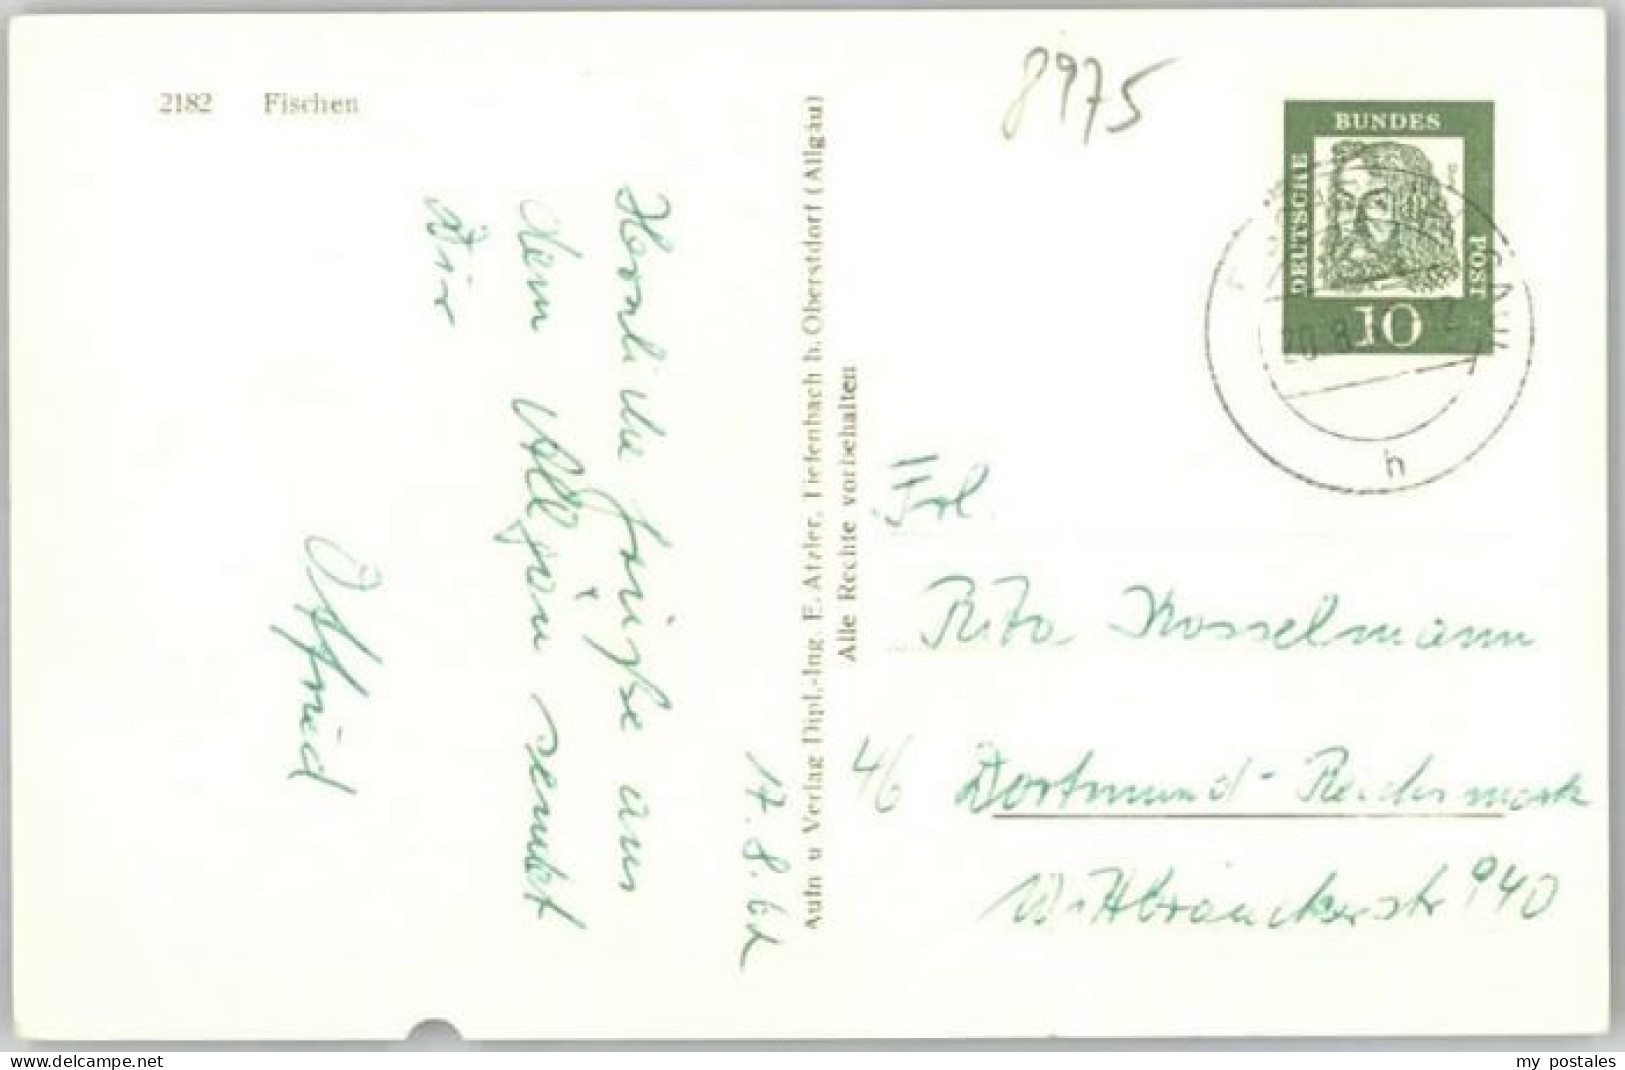 2182 Fischen
8975
BUNDES
DEUTSCHE
POST
10
h
17.8.62
Herzliche Grüße aus
dem Allgäu sendet
Dir
Aufn u Verlag Dipl.-Ing. E. Atzler, Tiefenbach b. Oberstdorf (Allgäu)
Alle Rechte vorbehalten
Frl.
Rita Kosselmann
46 Dortmund-Reichsmark
Wittbräuckerstr 940
www.delcampe.net
my_postales